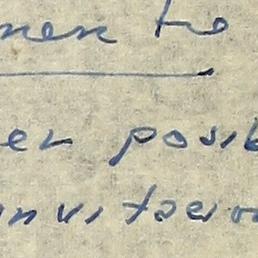 men to
er posib
invitaro